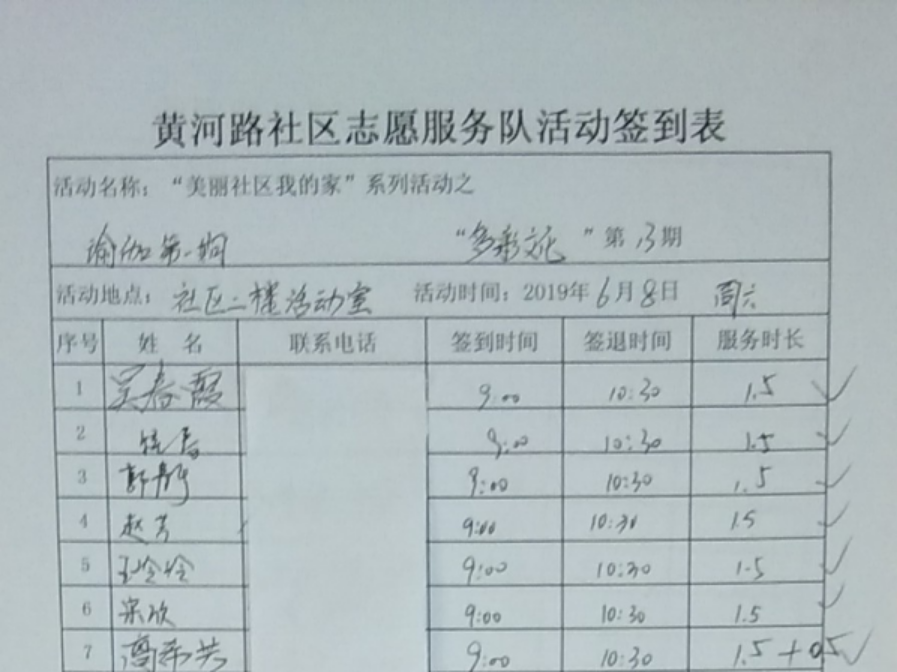 黄河路社区志愿服务队活动签到表
活动名称：“美丽社区我的家”系列活动之
瑜伽第一期 “多彩文化”第13期
活动地点：社区二楼活动室 活动时间：2019年6月8日 周六
序号 姓 名 联系电话 签到时间 签退时间 服务时长
1 吴春霞 9:00 10:30 1.5 ✓
2 9:00 10:30 1.5 ✓
3 郭静 9:00 10:30 1.5 ✓
4 赵芳 9:00 10:30 1.5 ✓
5 王玲玲 9:00 10:30 1.5 ✓
6 宋欣 9:00 10:30 1.5 ✓
7 高希芸 9:00 10:30 1.5+0.5 ✓